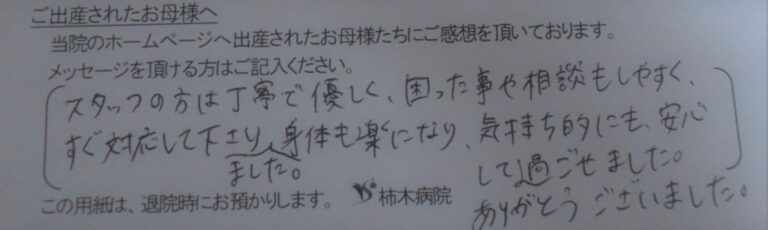 ご出産されたお母様へ
当院のホームページへ出産されたお母様たちにご感想を頂いております。
メッセージを頂ける方はご記入ください。
スタッフの方は丁寧で優しく、困った事や相談もしやすく、
すぐ対応して下さり、身体も楽になり、気持ち的にも、安心
ました。
して過ごせました。
ありがとうございました。
この用紙は、退院時にお預かりします。 柿木病院